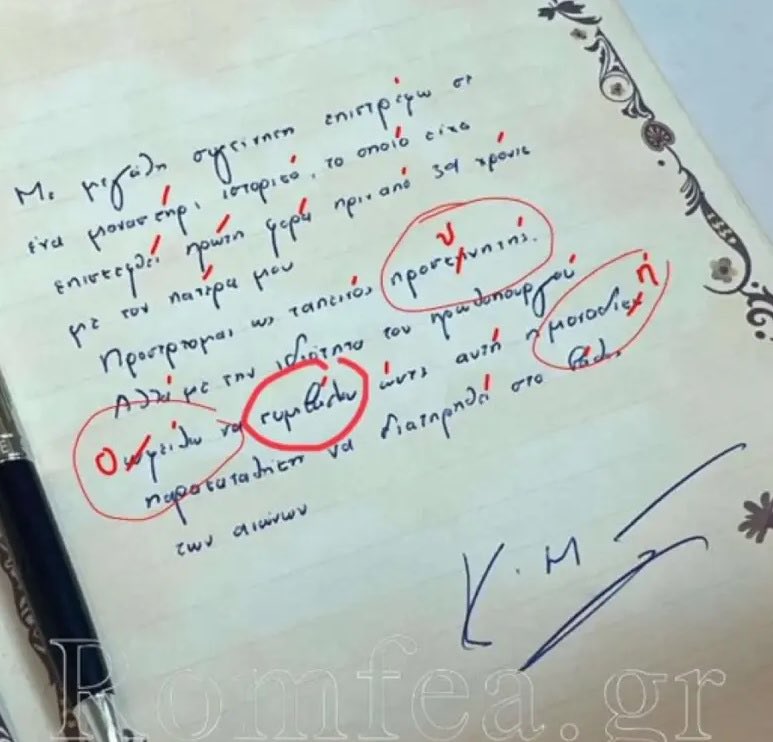 Με μεγάλη συγκίνηση επιστρέφω σε
ένα μοναστήρι ιστορικό, το οποίο είχα
επισκεφθεί πρώτη φορά πριν από 39 χρόνια
με τον πατέρα μου
Προσέρχομαι ως ταπεινός προσκυνητής.
υ
Αλλά με την ιδιότητα του πρωθυπουργού
ή
Ο ωφείλω να συμβάλω ώστε αυτή η μοναδικη
παρακαταθήκη να διατηρηθεί στο βάθ.
των αιώνων
Κ. Μ
Romfea.gr